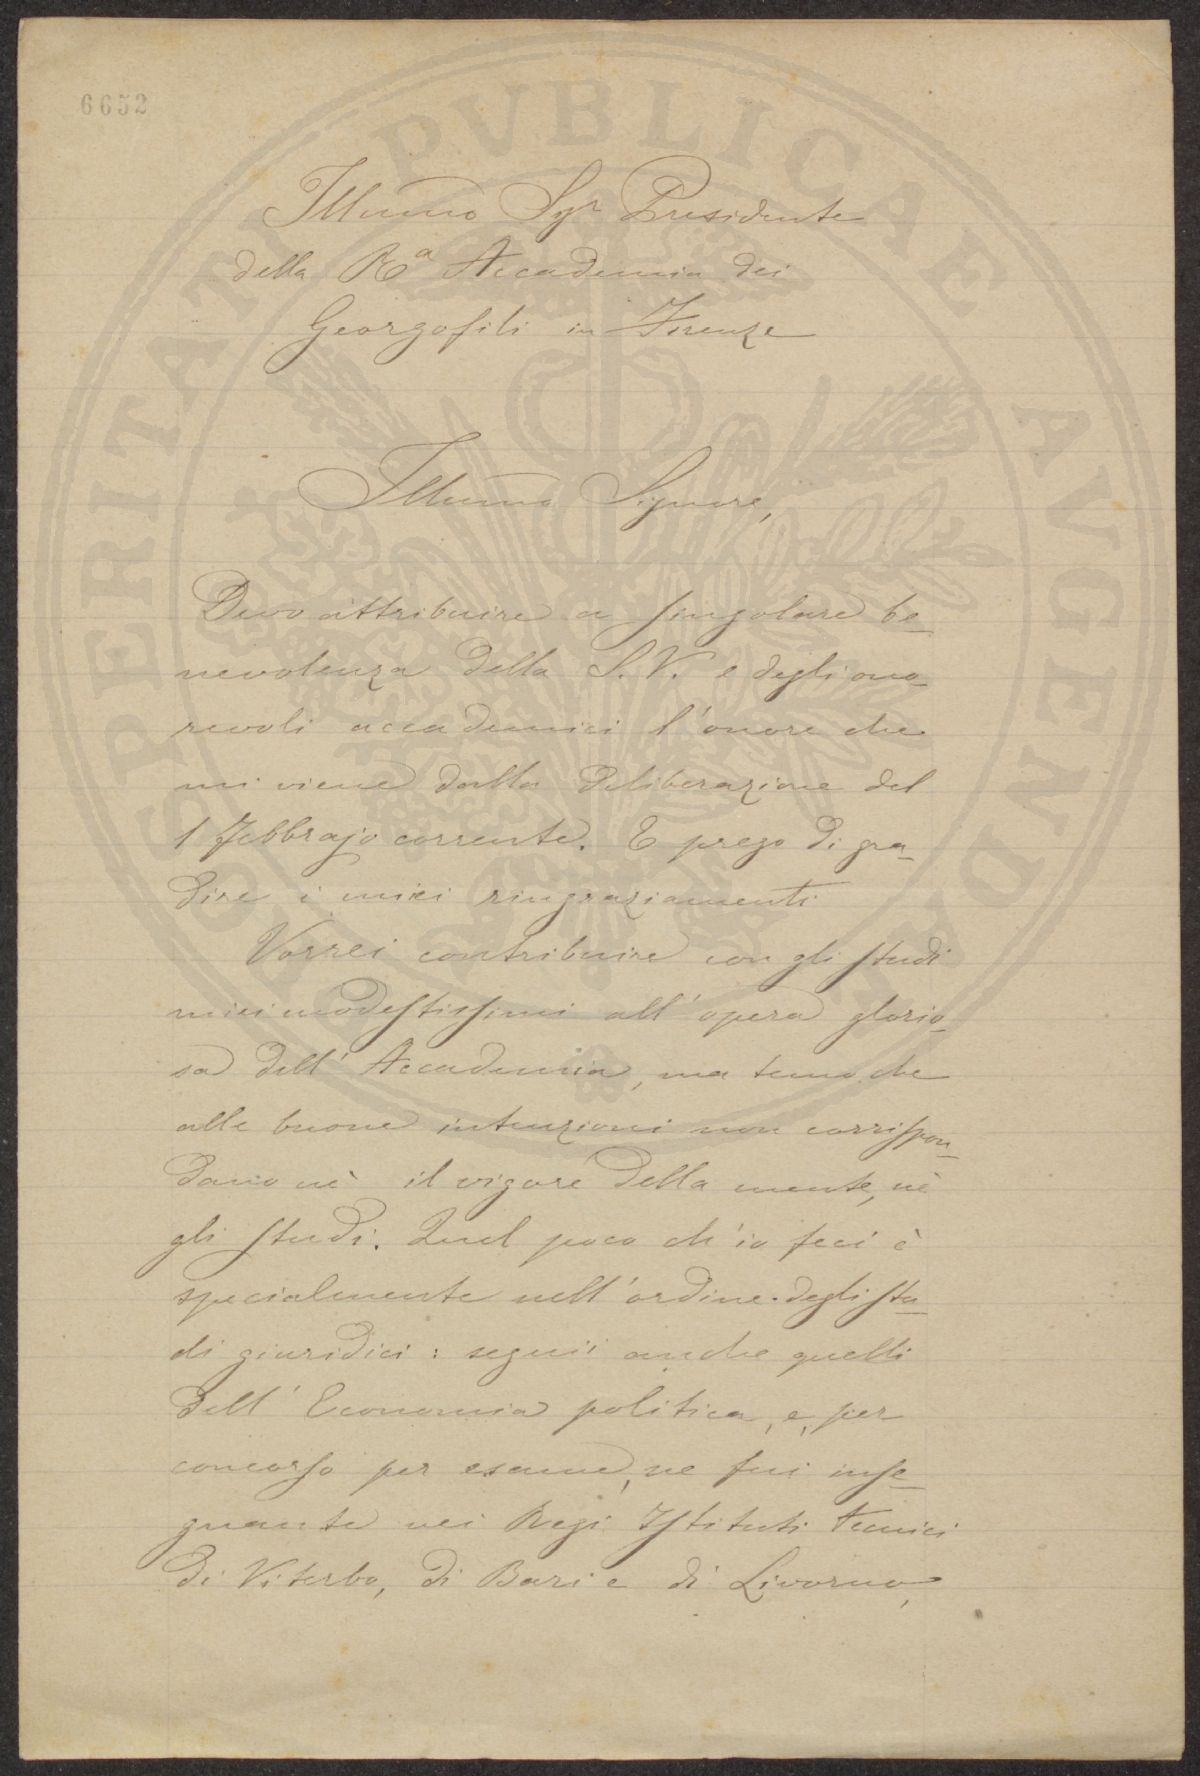 6652
PROSPERITATI PVBLICAE AVGENDAE
Illmo Sigr Presidente
della Ra Accademia dei
Georgofili in Firenze
Illmo Signore,
Devo attribuire a singolare be-
nevolenza della S.V. e degli ono-
revoli accademici l'onore che
mi viene dalla deliberazione del
1 Febbrajo corrente. E prego di gra-
dire i miei ringraziamenti
Vorrei contribuire con gli studi
miei modestissimi all'opera glorio-
sa dell'Accademia, ma temo che
alle buone intenzioni non corrispon-
dano nè il vigore della mente, nè
gli studi. Quel poco ch'io feci è
specialmente nell'ordine degli stu-
di giuridici: seguii anche quelli
dell'Economia politica, e, per
concorso per esame, ne fui inse-
gnante nei Regi Istituti tecnici
di Viterbo, di Bari e di Livorno,